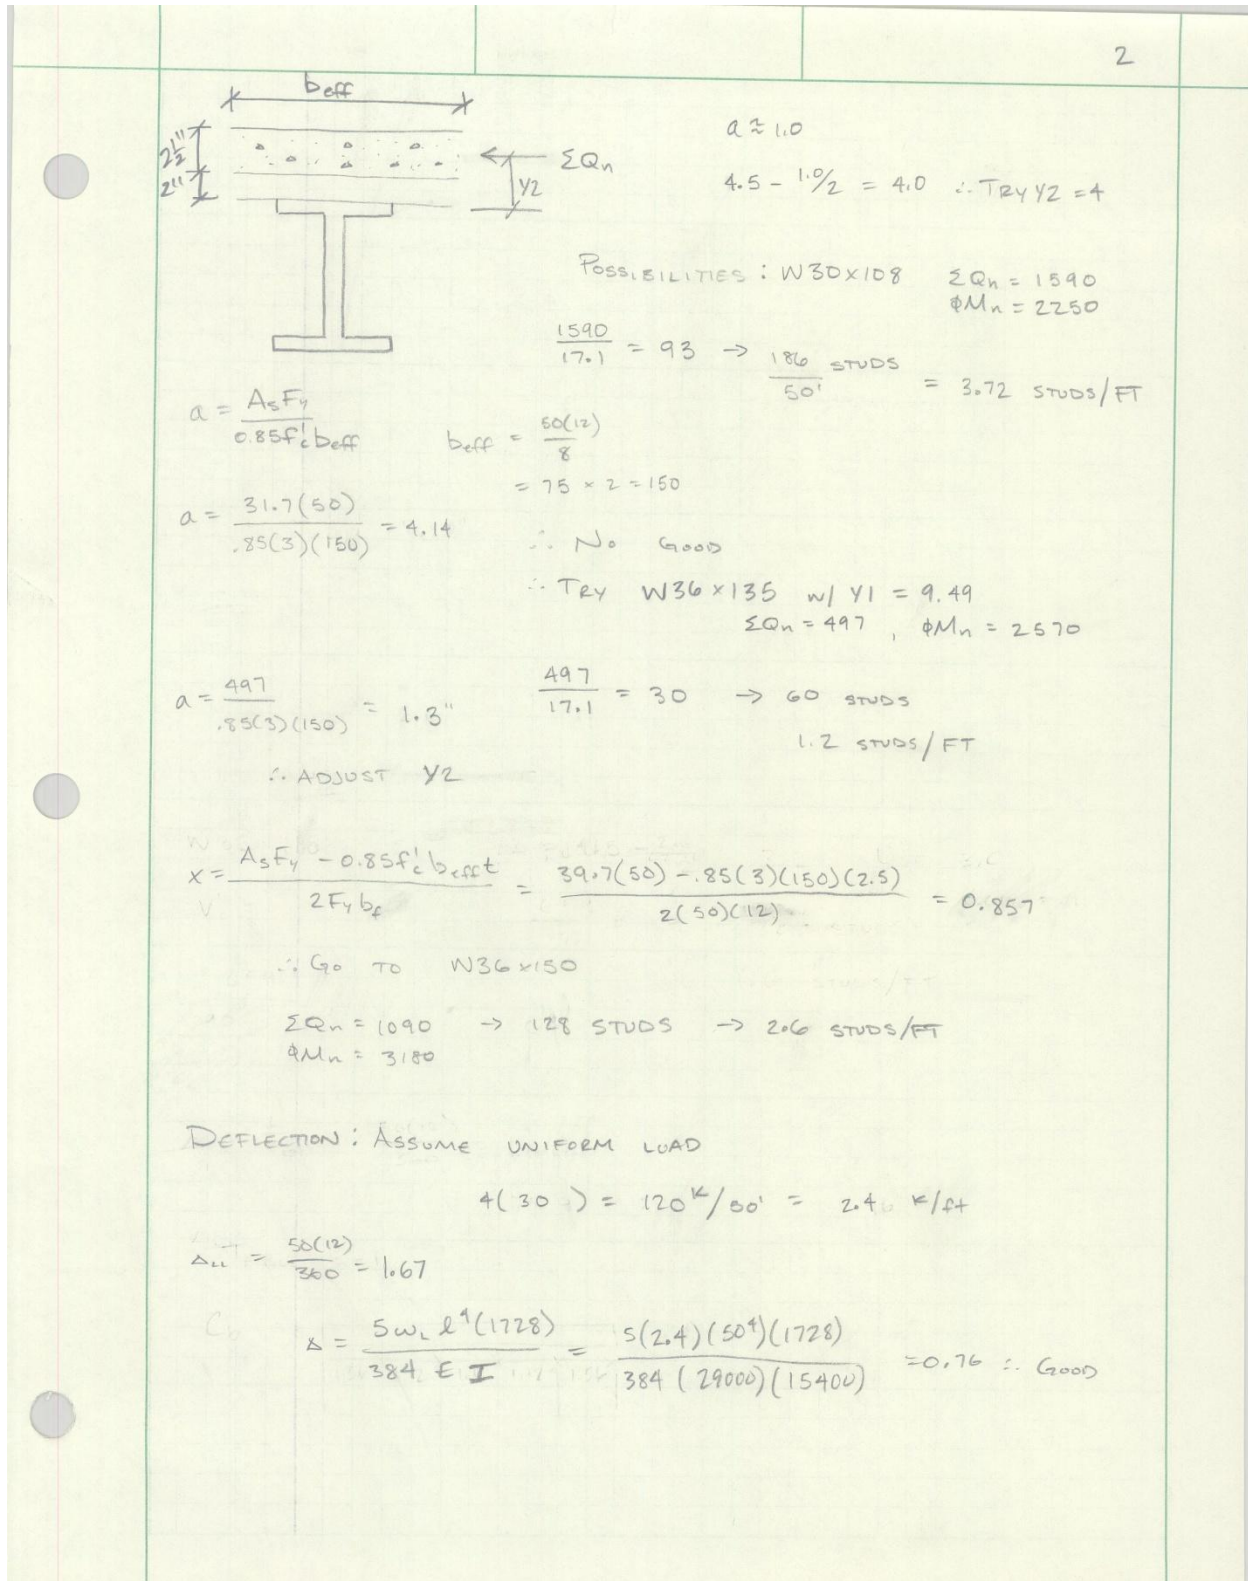 2
b eff
a ≈ 1.0
2 1/2"
ΣQn
2"
Y2
4.5 - 1.0/2 = 4.0 ∴ TRY Y2 = 4
POSSIBILITIES : W30×108 ΣQn = 1590
φMn = 2250
1590/17.1 = 93 → 186 STUDS/50' = 3.72 STUDS/FT
a = AsFy/0.85f'c beff
beff = 50(12)/8
= 75 × 2 = 150
a = 31.7(50)/.85(3)(150) = 4.14
∴ NO GOOD
∴ TRY W36×135 w/ Y1 = 9.49
ΣQn = 497 , φMn = 2570
a = 497/.85(3)(150) = 1.3"
497/17.1 = 30 → 60 STUDS
1.2 STUDS/FT
∴ ADJUST Y2
x = AsFy - 0.85f'c beff t/2Fy bf = 39.7(50) - .85(3)(150)(2.5)/2(50)(12) = 0.857
∴ GO TO W36×150
ΣQn = 1090 → 128 STUDS → 2.6 STUDS/FT
φMn = 3180
DEFLECTION : ASSUME UNIFORM LOAD
4(30 ) = 120 K/50' = 2.4 K/ft
ΔLL = 50(12)/360 = 1.67
Δ = 5wL l⁴(1728)/384 E I = 5(2.4)(50⁴)(1728)/384 (29000)(15400) = 0.76 ∴ GOOD